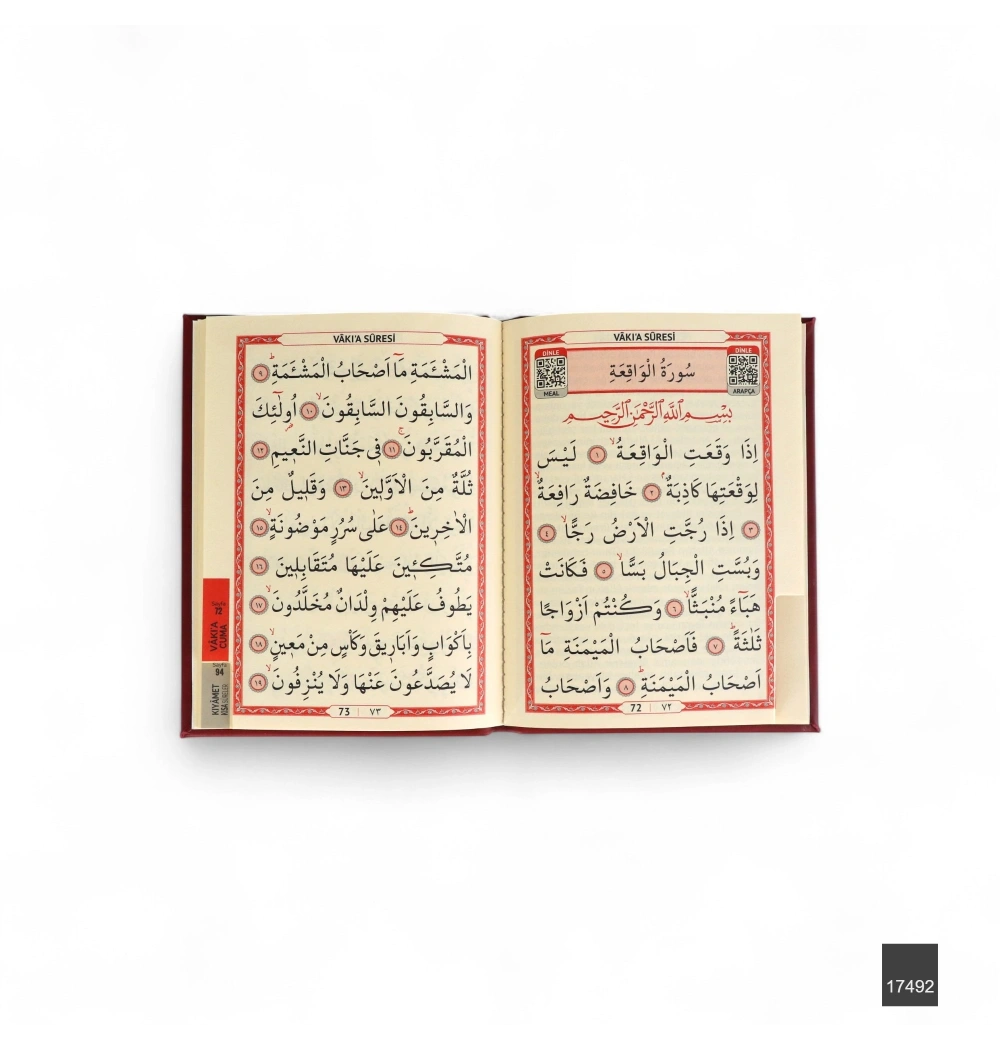 VÂKI'A SÛRESİ
DİNLE
MEAL
سُورَةُ الْوَاقِعَةِ
DİNLE
ARAPÇA
بِسْمِ اللّٰهِ الرَّحْمٰنِ الرَّحِيمِ
اِذَا وَقَعَتِ الْوَاقِعَةُۙ ﴿١﴾ لَيْسَ
لِوَقْعَتِهَا كَاذِبَةٌۢ ﴿٢﴾ خَافِضَةٌ رَافِعَةٌۙ
﴿٣﴾ اِذَا رُجَّتِ الْاَرْضُ رَجًّاۙ ﴿٤﴾
وَبُسَّتِ الْجِبَالُ بَسًّاۙ ﴿٥﴾ فَكَانَتْ
هَبَٓاءً مُنْبَثًّاۙ ﴿٦﴾ وَكُنْتُمْ اَزْوَاجًا
ثَلٰثَةًۜ ﴿٧﴾ فَاَصْحَابُ الْمَيْمَنَةِ مَٓا
اَصْحَابُ الْمَيْمَنَةِۜ ﴿٨﴾ وَاَصْحَابُ
72 | ٧٢
VÂKI'A SÛRESİ
الْمَشْـَٔمَةِ مَٓا اَصْحَابُ الْمَشْـَٔمَةِۜ ﴿٩﴾
وَالسَّابِقُونَ السَّابِقُونَۙ ﴿١٠﴾ اُو۬لٰٓئِكَ
الْمُقَرَّبُونَۚ ﴿١١﴾ ف۪ي جَنَّاتِ النَّع۪يمِ ﴿١٢﴾
ثُلَّةٌ مِنَ الْاَوَّل۪ينَۙ ﴿١٣﴾ وَقَل۪يلٌ مِنَ
الْاٰخِر۪ينَۜ ﴿١٤﴾ عَلٰى سُرُرٍ مَوْضُونَةٍۙ ﴿١٥﴾
مُتَّكِـ۪ٔينَ عَلَيْهَا مُتَقَابِل۪ينَ ﴿١٦﴾
يَطُوفُ عَلَيْهِمْ وِلْدَانٌ مُخَلَّدُونَۙ ﴿١٧﴾
بِاَكْوَابٍ وَاَبَار۪يقَ وَكَأْسٍ مِنْ مَع۪ينٍۙ ﴿١٨﴾
لَا يُصَدَّعُونَ عَنْهَا وَلَا يُنْزِفُونَۙ ﴿١٩﴾
73 | ٧٣
Sayfa
72
VÂKI'A
CUMA
Sayfa
94
KIYÂMET
KISA SÛRELER
17492